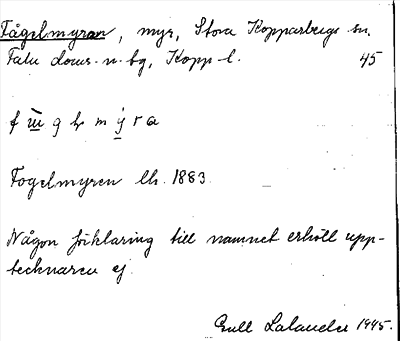 Fågelmyran, myr, Stora Kopparbergs sn.
Falu doms. n. bg, Kopp. l. 45
Fogelmyren lh. 1883.
Någon förklaring till namnet erhöll upp-
tecknaren ej.
Gull Lalander 1945.